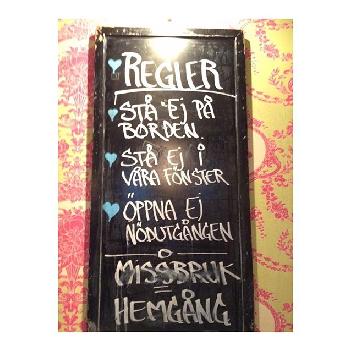 REGLER
STÅ EJ PÅ
BORDEN.
STÅ EJ I
VÅRA FÖNSTER
ÖPPNA EJ
NÖDUTGÅNGEN
MISSBRUK
=
HEMGÅNG